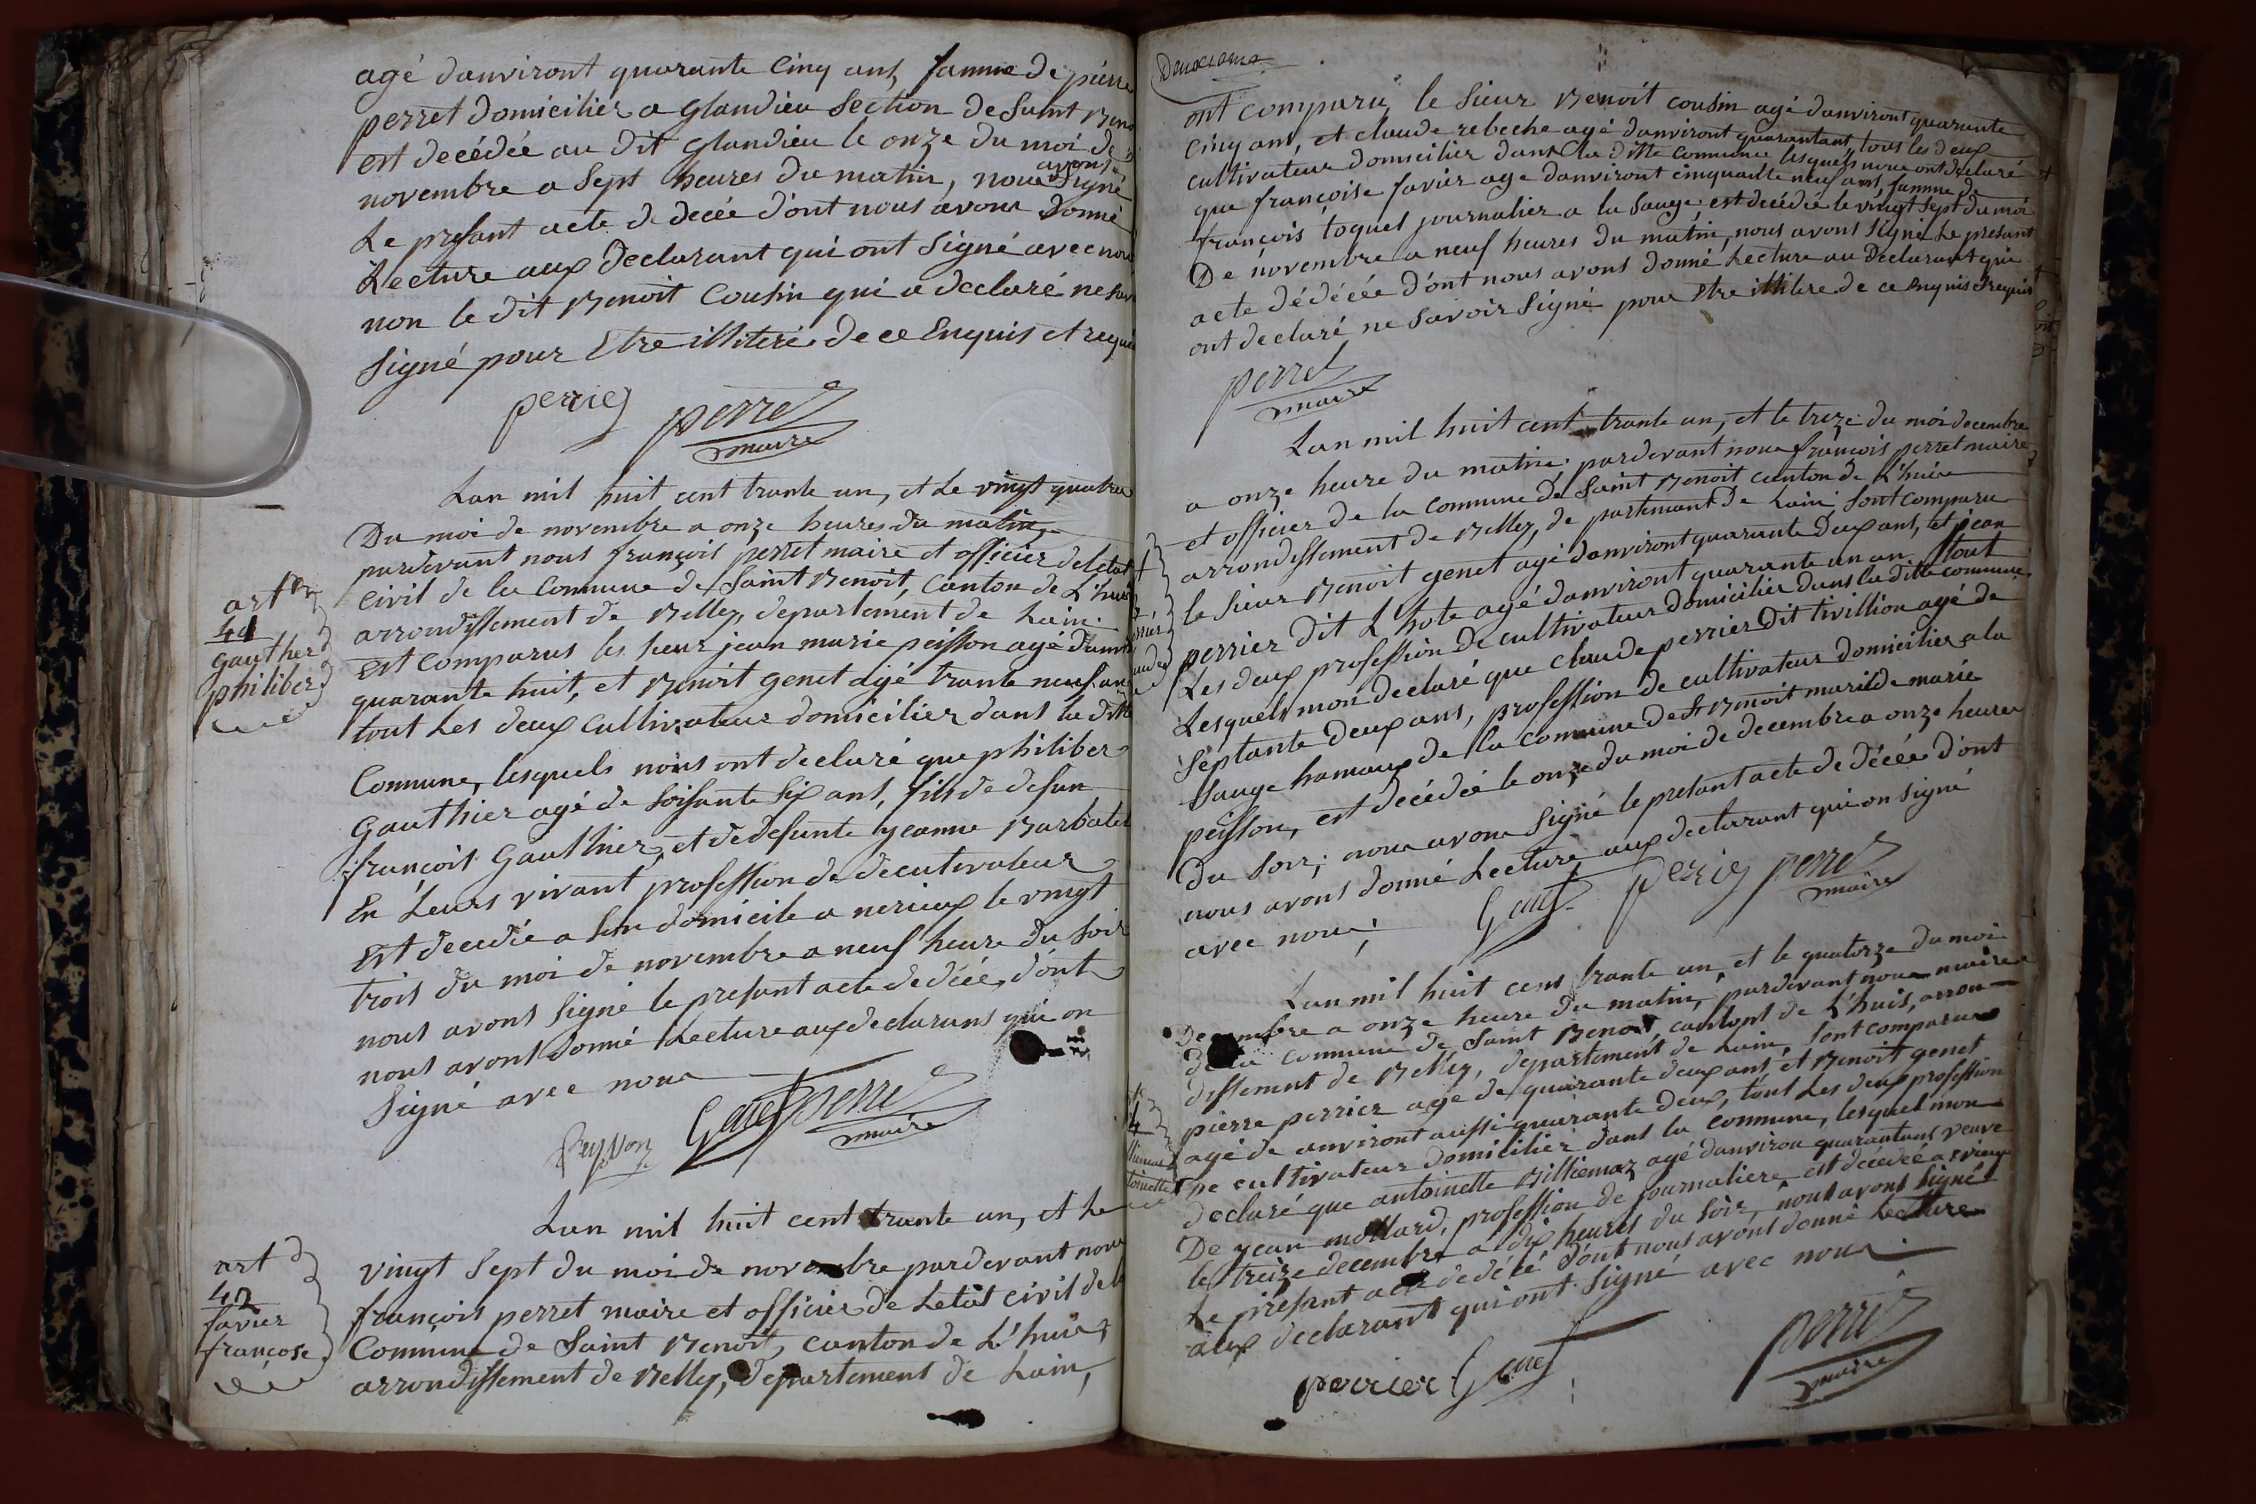 agé danviront quarante cinq ans, famme de pierre
perret domicilier a glandieu Section de Saint Beno
est decédée au dit glandieu le onze du moi de
novembre a Sept heures du matin, nous avons Signé
Le presant acte de decée d'ont nous avons donné
Lecture aux declarant qui ont Signé avec nou
non le dit Benoit Cousin qui a declaré ne sav
Signé pour Etre illiteré de ce Enquis et requi
perrier perret
maire
Lan mil huit cent trante un, et Le vingt quatre
Du moi de novembre a onze heures du matin,
pardevant nous françois perret maire et officier de letat
Civil de la Commune de Saint Benoit, Canton de L'huis
arrondissement de Belley, departement de Lain.
art
41
gauthier
philiber
est Comparus les sieur jean marie peisson agé danvir
quarante huit, et Benoit genet agé trante neuf an
tout Les deux Cultivateur domicilier dans la ditte
Commune, lesquels nous ont declaré que philiber
Gauthier agé de Soisante Six ans, fils de defun
françois Gauthier, et de defunte jeanne Barbalet
En Leurs vivant profession de de cutivateur
Est decedée a Son domicile a nerieux le vingt
trois du moi de novembre a neuf heure du Soir
nous avons Signé le presant acte de décée, d'ont
nous avons donné Lecture aux declarans qui on
Signé avec nous
Peysson Genet perret
maire
Lan mil huit cent trante un, et Le
art
42
favier
françose
vingt Sept du moi de novembre pardevant nous
françois perret maire et officier de Letat civil de la
Commune de Saint Benoit, canton de L'huis,
arrondissement de Belley, departement de Lain,
ont comparu, le Sieur Benoit cousin agé danviront quarante
cinq ans, et claude rebeche agé danviront quarantans, tous les deux
cultivateur domicilier dans la ditte commune lesquels nous ont declaré
que françoise favier age danviront cinquante neuf ans, famme de
françois toquet journalier a la Sauge, est decédée le vingt Sept du moi
De novembre a neuf heures du matin, nous avons Signé Le presant
acte dédécée d'ont nous avons donné Lecture au Declarant qui
ont declaré ne Savoir Signé pour Etre illitere de ce enquis et requis
perret
maire
Lan mil huit cent trante un, et le treze du moi decembre
a onze heure du matin, pardevant nous françois perret maire
et officier de la commune de Saint Benoit canton de L'huis
arrondissement de Belley, de partemant De Lain, Sont comparu
le Sieur Benoit genet agé danviront quarante deux ans, et jean
perrier dit L'hote agé danviront quarante un an tout
Les deux profession De cultivateur domicilier dans la ditte commune,
Lesquels mon declaré que claude perrier dit tivillion agé de
Septante deux ans, profession de cultivateur domicilier a la
Sauge hamaux de la commune de St Benoit mari de marie
peisson, est decédée le onze du moi de decembre a onze heures
du Soir, nous avons Signé le presant acte de décée d'ont
nous avons donné Lecture aux declarant qui on Signé
avec nous,
Genet perrier perret
maire
Lan mil huit cent trante un, et le quatorze du moi
Decembre a onze heure du matin, pardevant nous maire
de la commune de Saint Benoit, cantont de L'huis, arron-
dissement de Belley, departement de Lain, Sont comparus
pierre perrier agé de quarante deux ans, et Benoit genet
agé de anviront aussi quarante deux, tout Les deux profession
De cultivateur domicilier dans la commune, lesquel mon
declaré que antoinette Billiemaz agé danviron quarantans veuve
De jean mollard, profession de journaliere est décédée
le treize decembre a dix heures du Soir, nous avons Signé
Le present acte de décé d'ont nous avons donné Lecture
aux declarant qui ont Signé avec nous.
perrier Genet perret
maire